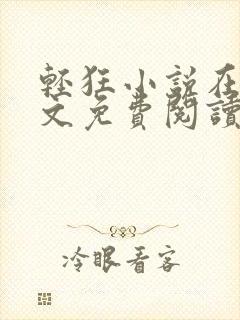 輕狂小說在
文免費閱讀
冷眼看客